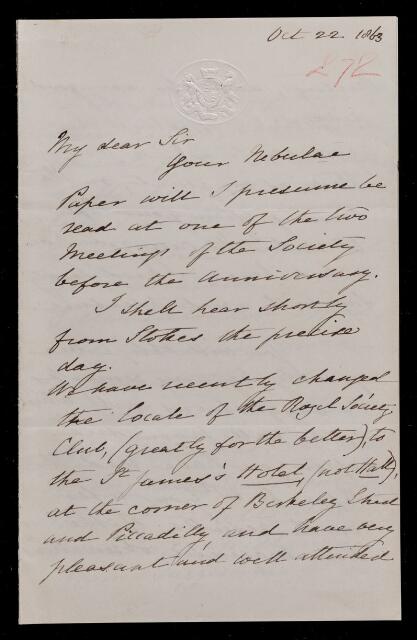 Oct 22. 1863
278
My dear Sir
Your Nebulae
Paper will I presume be
read at one of the two
Meetings of the Society
before the Anniversary.
I shall hear shortly
from Stokes the precise
day.
We have recently changed
the locale of the Royal Society
Club, (greatly for the better), to
the St James's Hotel, (not Hall),
at the corner of Berkeley Street
and Piccadilly, and have very
pleasant and well attended